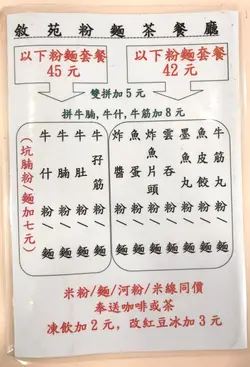 敘苑粉麵茶餐廳
以下粉麵套餐
45元
以下粉麵套餐
42元
雙拼加5元
拼牛腩,牛什,牛筋加8元
(坑腩粉/麵加七元)
牛什粉/麵
牛腩粉/麵
牛肚粉/麵
牛孖筋粉/麵
炸醬粉/麵
魚蛋粉/麵
炸魚片頭粉/麵
雲吞粉/麵
墨魚丸粉/麵
魚皮餃粉/麵
牛筋丸粉/麵
米粉/麵/河粉/米線同價
奉送咖啡或茶
凍飲加2元,改紅豆冰加3元